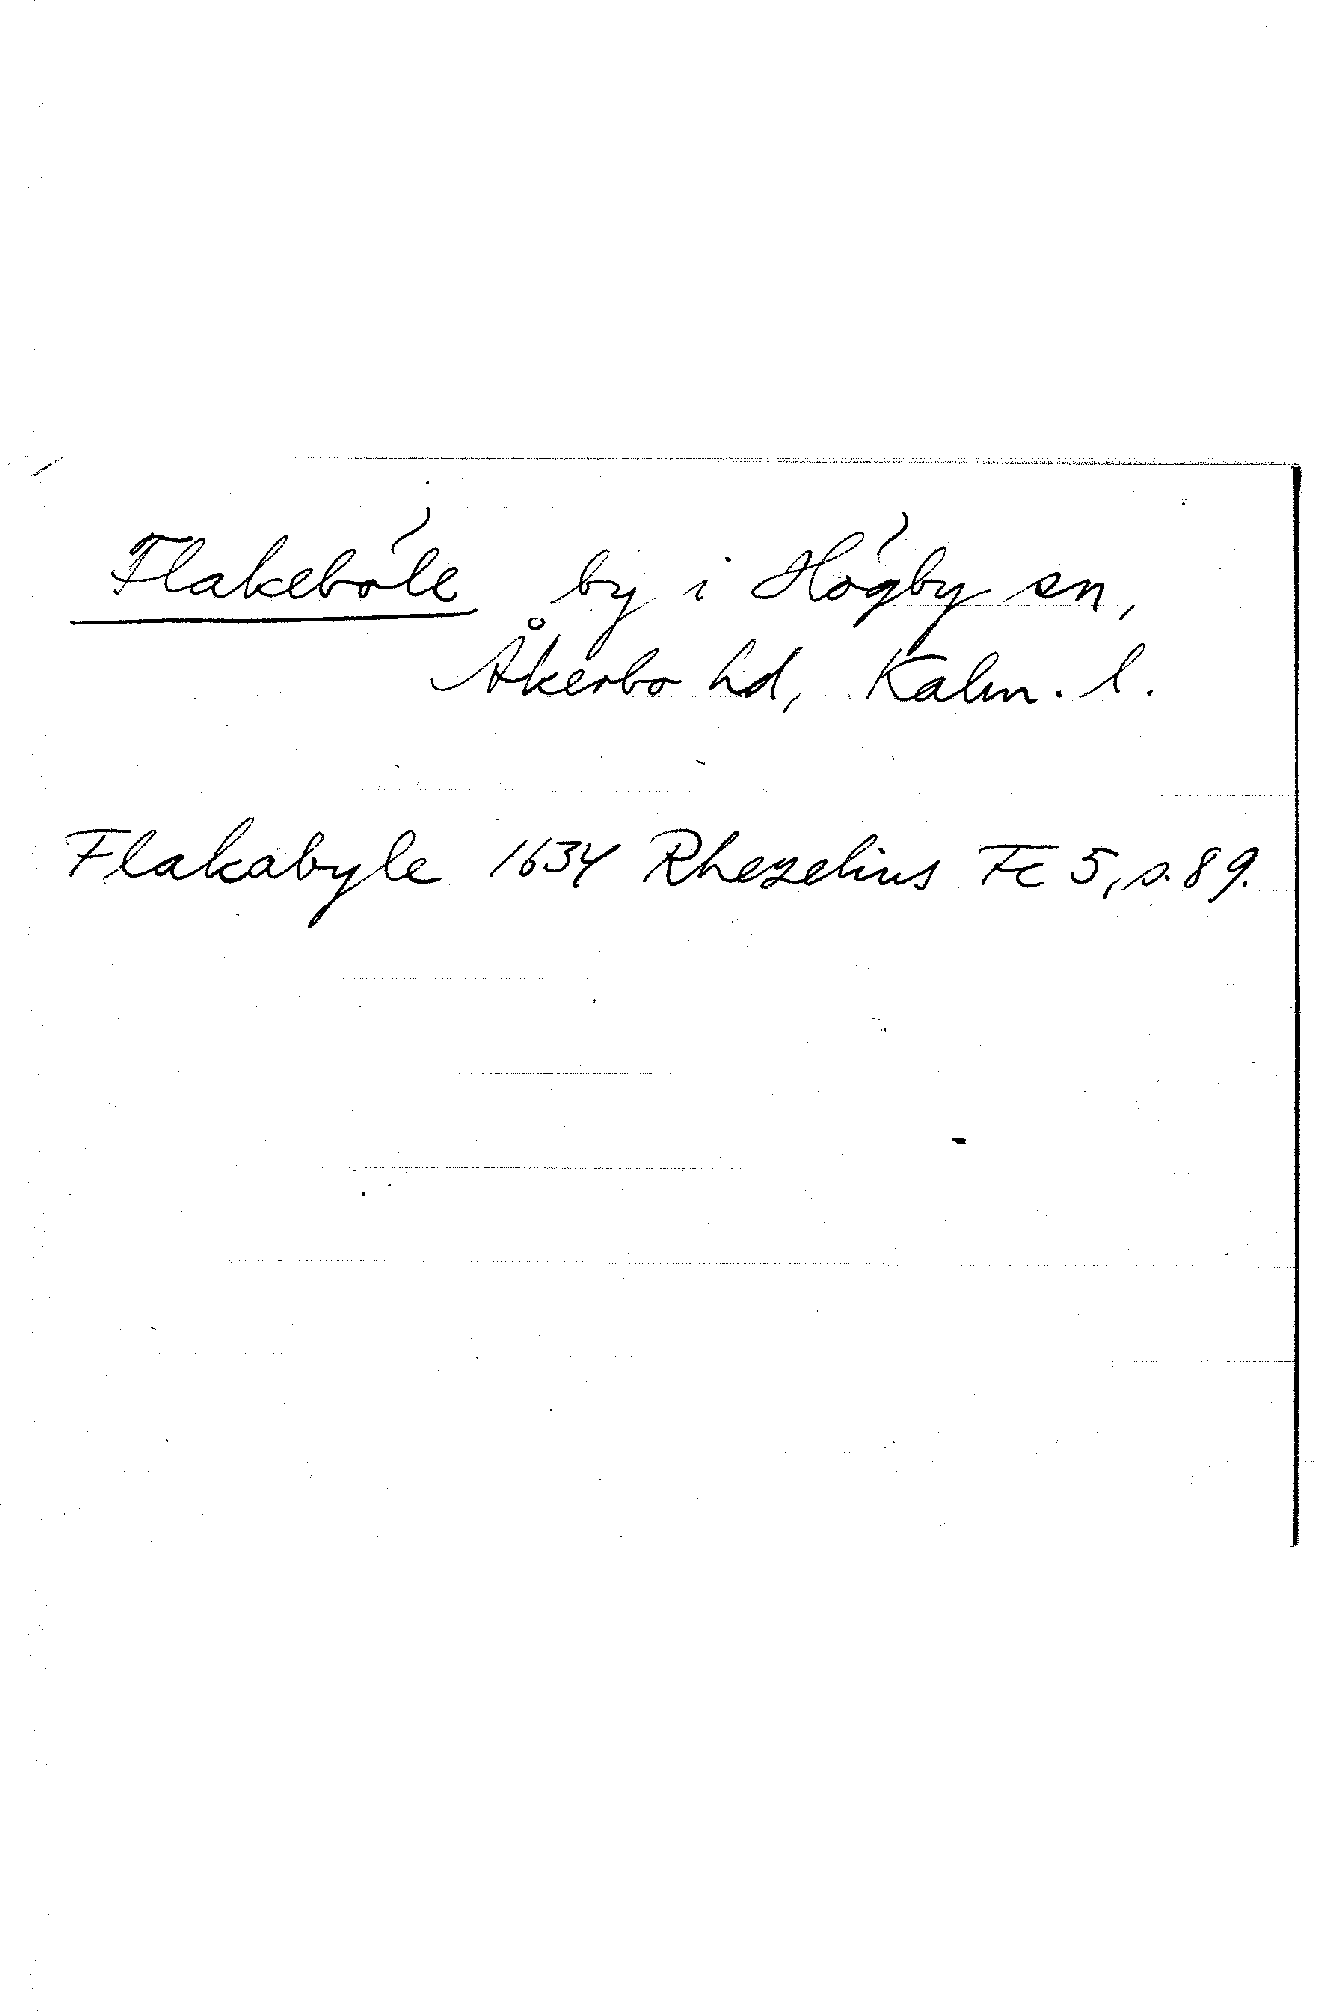 Flakeböle by i Högby sn,
Åkerbo hd, Kalm. l.
Flakabyle 1634 Rhezelius Fc 5, s. 89.